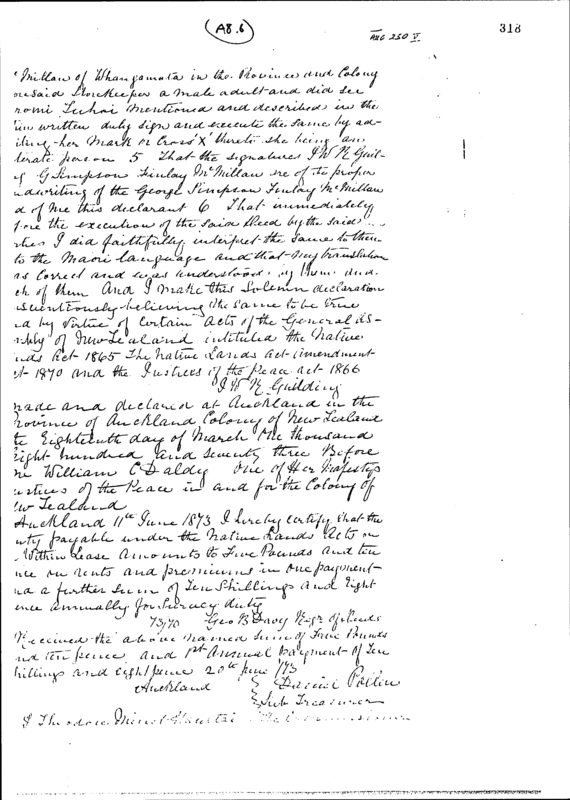 (A8.6)
AUC 250 V
313
Millan of Whangamata in the Province and Colony
oresaid Storekeeper a male adult and did see
romi Tuhai Mentioned and described in the
written duly sign and execute the same by ad-
her Mark or Cross X thereto she being an
terate person 5 That the signatures J W R Guil-
G Simpson Finlay McMillan are of the proper
ndwriting of the George Simpson Finlay McMillan
d of Me this declarant 6 That immediately
fore the execution of the said Deed by the said
I did faithfully interpret the same to them
to the Maori language and that my translation
as correct and was understood by them and
ch of them And I make this Solemn declaration
scientiously believing the same to be true
nd by virtue of certain Acts of the General As-
mbly of New Zealand intituled the Native
nds Act 1865 The Native Lands Act Amendment
ct 1870 and the Justices of the Peace Act 1866
J W R Guilding
made and declared at Auckland in the
Province of Auckland Colony of New Zealand
the Eighteenth day of March One thousand
Eight hundred and seventy three Before
me William C Daldy One of Her Majestys
ustices of the Peace in and for the Colony of
ew Zealand
Auckland 11th June 1873 I hereby certify that the
uty payable under the Native Lands Acts on
Within Lease amounts to Five Pounds and ten
nce on rents and premiums in one payment
nd a further sum of Ten Shillings and Eight
ence annually for Survey duty
73/70 Geo B Davy Regr of Deeds
Received the above named sum of Five Pounds
nd ten pence and 1st Annual payment of Ten
hillings and eight pence 20th June /73
Auckland } Daniel Pollen
} Sub Treasurer
I Theodore Minet